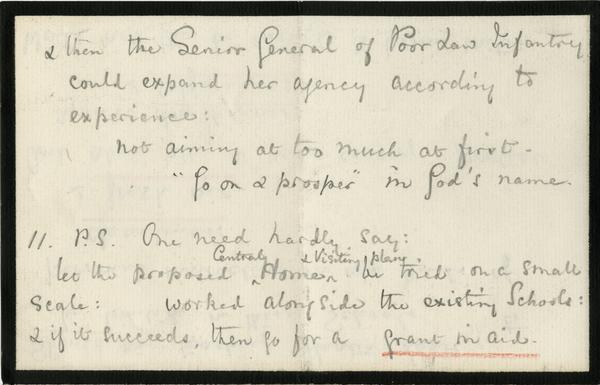 & then the Senior General of Poor Law Infantry
could expand her agency according to
experience:
not aiming at too much at first -
"Go on & prosper" in God's name.
11. P.S. One need hardly say:
let the proposed ^Central Home^ & Visiting plan, be tried on a small
scale: worked alongside the existing Schools:
& if it succeeds, then go for a grant in aid.